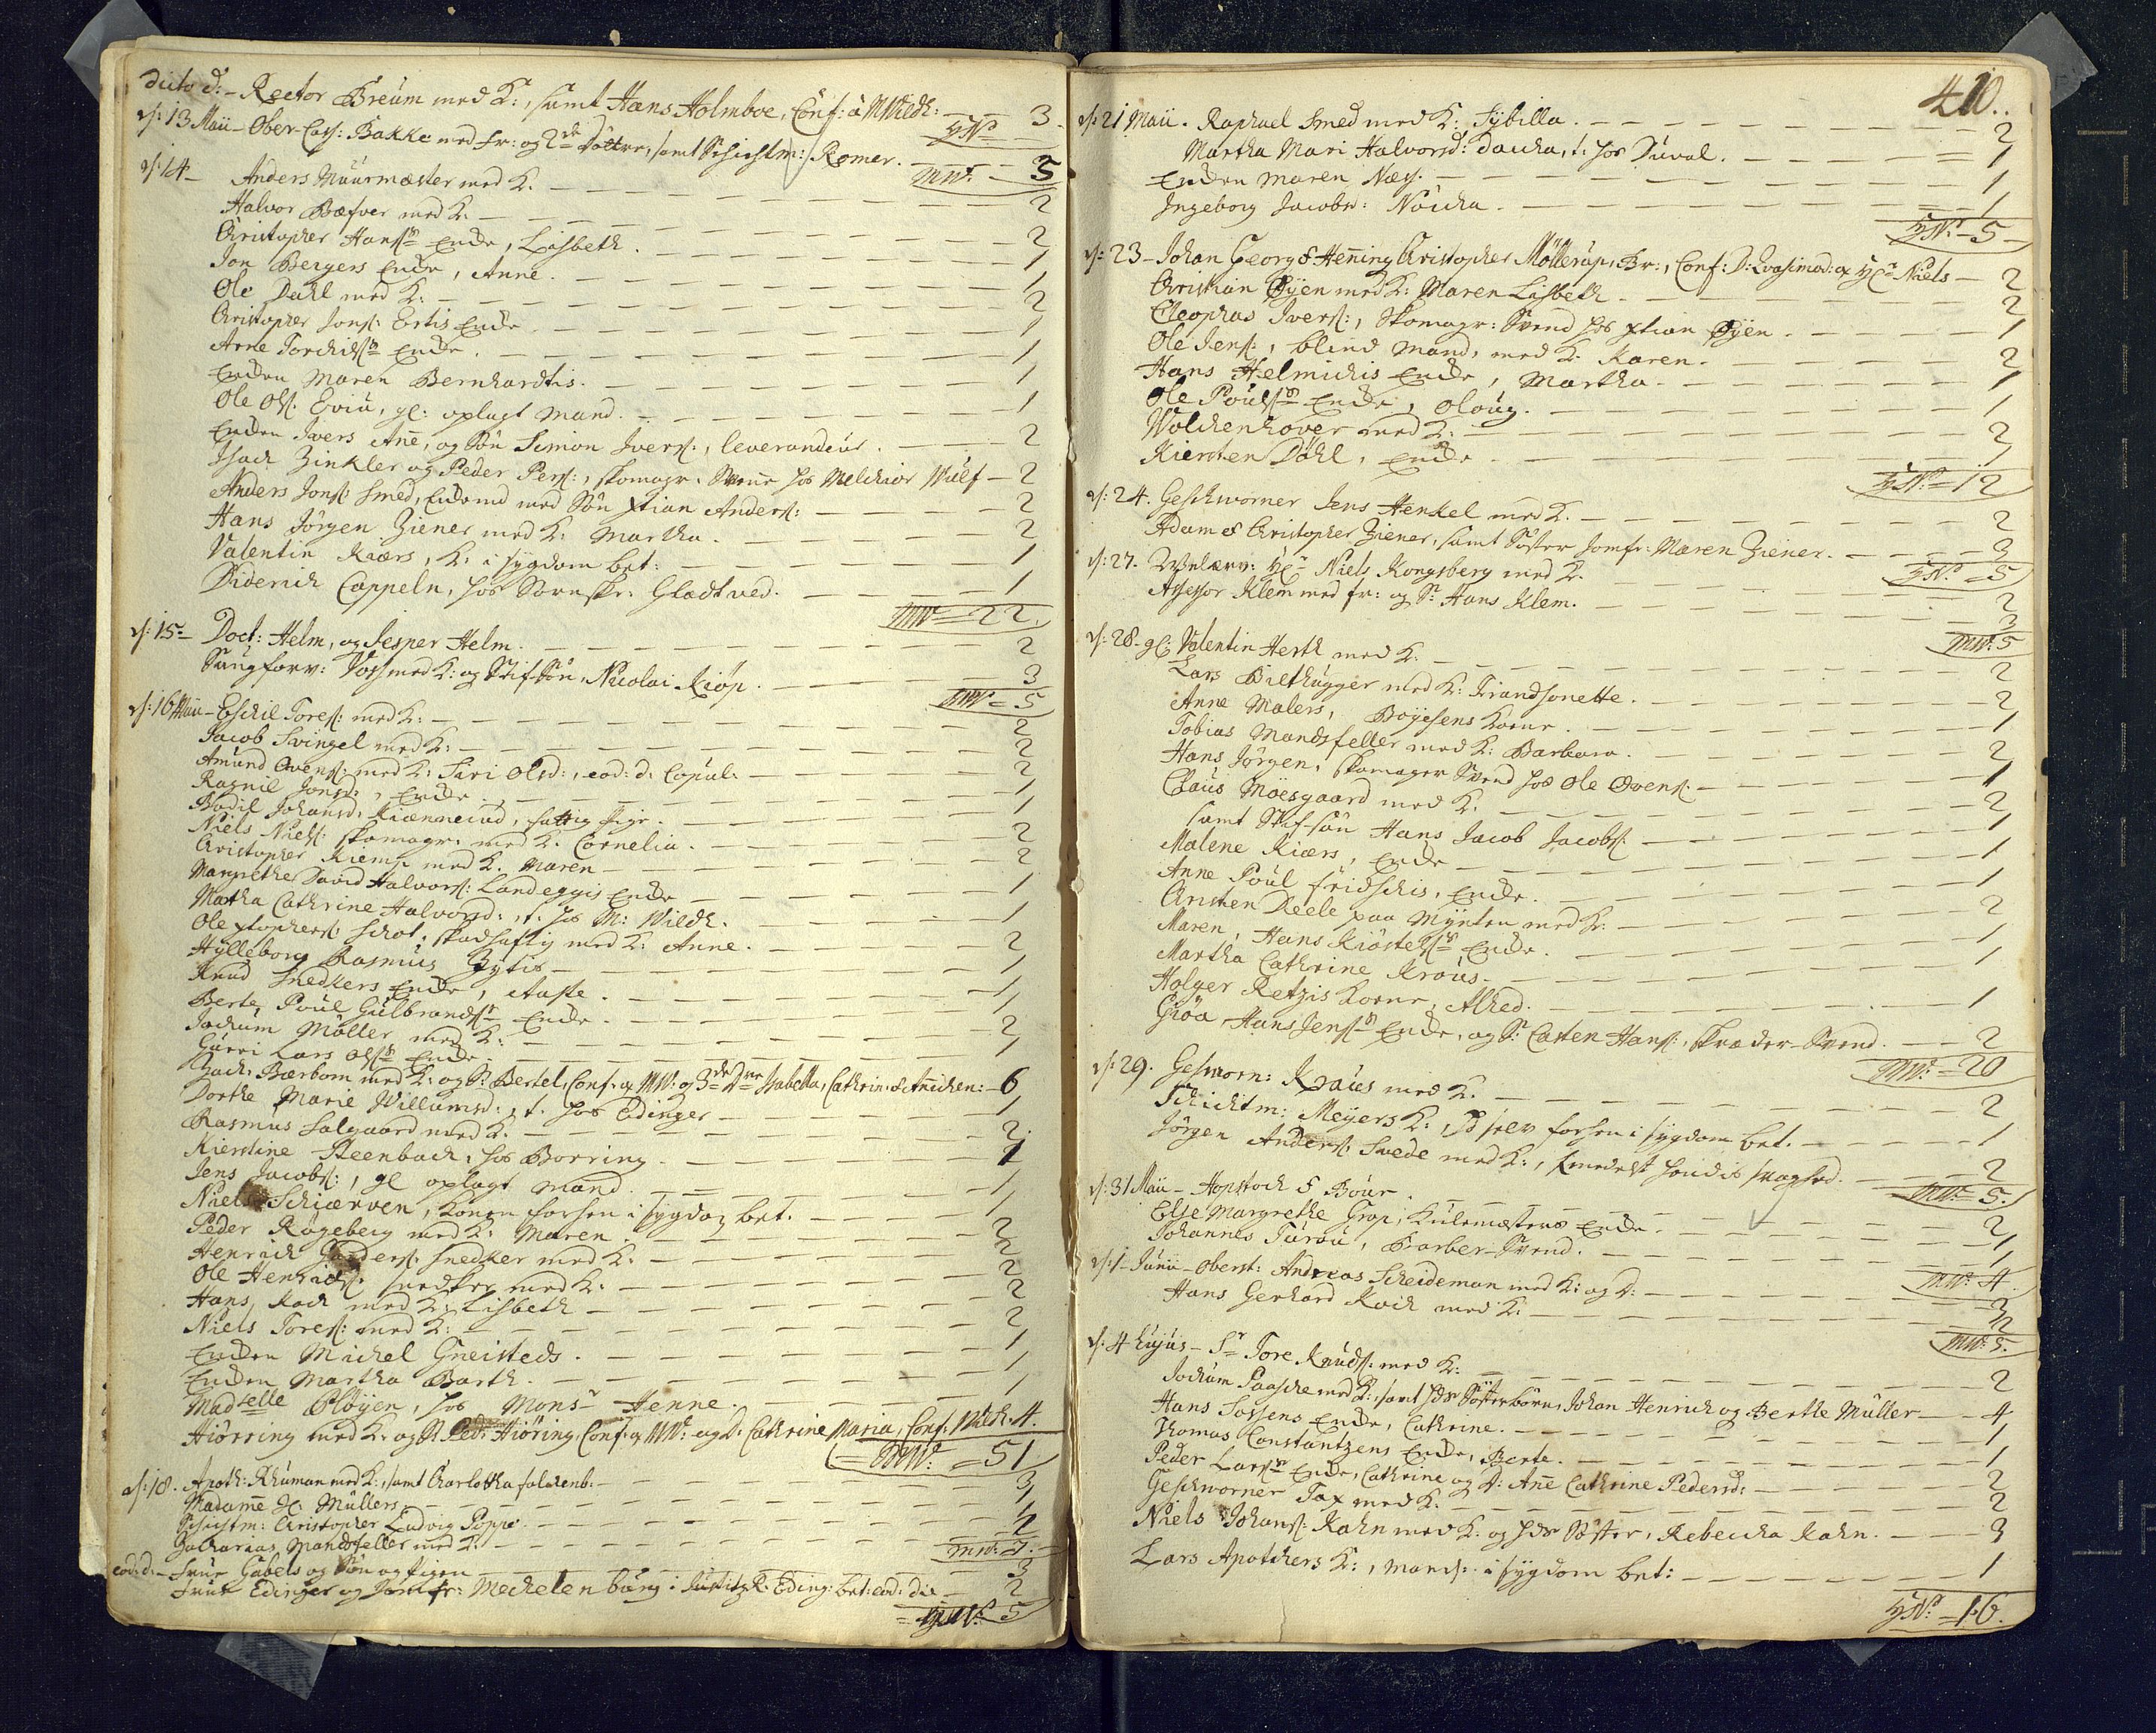 dicto d: - Rector Breum med K:, samt Hans Holmboe, Conf: a MWildh: 3
HN
d: 13 Maii - Ober-Cass: Bakke med Fr: og 2de Døttre, samt Schichtm: Rømer. 5
MW:
d: 14 - Anders Muurmæster med K. 2
Halvor Bæfver med K. 2
Christopher Hanss: Enche, Lisbeth. 1
Jon Bergers Enche, Anne. 1
Ole Dahl med K: 2
Christopher Jons: Enche. 1
Arne Torchilss: Enche. 1
Enchen Maren Bernhardtis. 1
Ole Ols: Eviu, gl: oplagt Mand. 1
Enchen Ivers Anne, og Søn Simon Ivers:, leverandeur. 2
Isach Zinkler og Peder Pers:, skomagr. Svenne hos Melchior Wulf - 2
Anders Jons: Smed, med Søn Xtian Anders: 2
Hans Jørgen Ziener med K: Martha. 2
Valentin Kiærs, K: i sygdom bet: 1
Diderich Cappeln, hos Sornskr: Gladtved. 1
MW = 22
d: 15 - Doct: Helm, og Jesper Helm. 2
Voss med K: og Stif Søn, Nicolai Kiøp. 3
MW = 5
d: 16 Maii - Eschil Tores: med K: 2
Jacob Svingel med K: 2
Amund Ovens: med K: Siri Olsd:, eod: d: Copul: 2
Ragnil Jonsd:, Enche 1
Bodil Johansd: fattig Pige. 1
Niels Niels: skomagr. med K. Cornelia. 2
Christopher Kiemp med K. Maren 2
Margrethe David Halvors: Landeggis Enche 1
Martha Cathrine Halvorsd:, t. hos M: Wildh. 1
Ole Xtophers: Schot: med K: Anne. 2
Hylleborg Rasmus 1
Knud Snedkers Enche, Aaste. 1
Berte, Poul Gulbrandss: Enche. 1
Jochum Møller med K: 2
Gurri Lars Olss: Enche. 1
Zach: Bærbom med K: og S: Bertel, Conf: af MW: og 3de Døtre Isabella, Cathrin: & Anichen: - 6
Dorthe Marie Willumsd:, t. hos Edinger 1
Rasmus Salgaard med K. 2
Kierstine Steenbach, hos Borring. 1
Jens Jacobs:, gl oplagt Mand. 1
Niels Schierven, Konen forhen i sygdom bet. 1
Peder Rogeberg med K: Maren. 2
Henrich snedker med K: 2
Ole Henrichs: snedker med K: 2
Hans Koch med K: Lisbeth 2
Niels Tores: med K: 2
Enchen Michel Gneisteds. 1
Enchen Martha Barth. 1
Madselle Pløyen, hos Mons: Henne. 1
Hiørring med K: og S: Ped: Hiøring, Conf: af MW: og D. Cathrine Maria, Conf: Wildh: 4.
MW: = 51
d: 18. Apoth: Rhuman med K:, samt Charlotha Falckenb: 3
Madame H: Müllers. 1
Schichtm: Christopher Ludvig Poppe. 1
Zacharias Mandsfeller med K. 2
MW: 7.
eod: d: - Frue Gabels og Søn og 3
Frue Edinger og Jomfr: Mechelenburg i Justitz R: Eding: bet: eod: die 2
HN: 5
410.
d: 21 Maii. Raphael Smed med K: Sybilla. 2
Martha Mari Halvorsd: Daucha, t: hos Duval. 1
Enchen Maren Næss. 1
Ingeborg Jacobs: 1
HN: - 5
d: 23 - Johan Georg & Henning Christopher Møllerup, Br:, Conf: D: Qvasimod: af Hr: Niels - 2
Christian Øyen med K: Maren Lisbeth. 2
Cleophas Ivers:, Skomagr: Svend hos Xtian Øyen. 1
Ole Jens:, blind Mand, med K. Karen. 2
Hans Helmichis Enche, Martha. 1
Ole Poulss: Enche, Oloug. 1
Wolckenhover med K: 2
Kiersten Døhl, Enche. 1
HN: = 12
d: 24. Geschworner Jens Henkel med K. 2
Adam & Christopher Ziener, samt Søster Jomfr: Maren Ziener. 3
HN = 5
d: 27. Hr: Niels Kongsberg med K. 2
Assessor Klem med Fr: og S: Hans Klem. 3
MW: 5
d: 28 - gl: Valentin Herth med K. 2
Lars Bilthugger med K: Trandsonette. 2
Anne Malers, Boyesens Kone. 1
Tobias Mandsfeller med K: Barbara. 2
Hans Jørgen, skomager Svend hos Ole Ovens: 1
Claus Moesgaard med K. 2
samt Stif-søn Hans Jacob Jacobs: 1
Malene Kiærs, Enche 1
Anne Poul Fridschis, Enche. 1
Christen Reele paa Mynten med K: 2
Maren, Hans Kiøstelss: Enche. 1
Martha Cathrine Kraus. 1
Holger Retzis Kone, Alhed. 1
Groa Hans Jenss: Enche, og S: Casten Hans:, skræder-Svend. 2
MW: = 20
d: 29. Geschworn: Kraus med K. 2
Schichtm: Meyers K:, selv forhen i sygdom bet. 1
Jørgen Anders: Svede med K:, formedelst hendes svaghed. 2
MW = 5.
d: 31 Maii - Hopstoch & Bour. 2
Else Margrethe Grop, Kulemesters Enche. 1
Johannes Turau, Barber-Svend. 1
MW: 4
d: 1 Junii - Oberst: Andreas Scheideman med K: og D: 3
Hans Gerhard Koch med K: 2
MW: 5.
d: 4 hujus - Sr Tore Knuds: med K: 2
Jochum Paasche med K:, samt hds Søsterbørn, Johan Henrich og Berthe Müller - 4
Hans Sossens Enche, Cathrine. 1
Thomas Constantzens Enche, Berte. 1
Peder Larss: Enche, Cathrine og D: Anne Cathrine Pedersd: 2
Geschworner Tax med K. 2
Niels Johans: Kahn med K. og hds Søster, Rebecha Kahn. 3
Lars Apothekers K:, Mands: i sygdom bet: 1
HN: = 16.